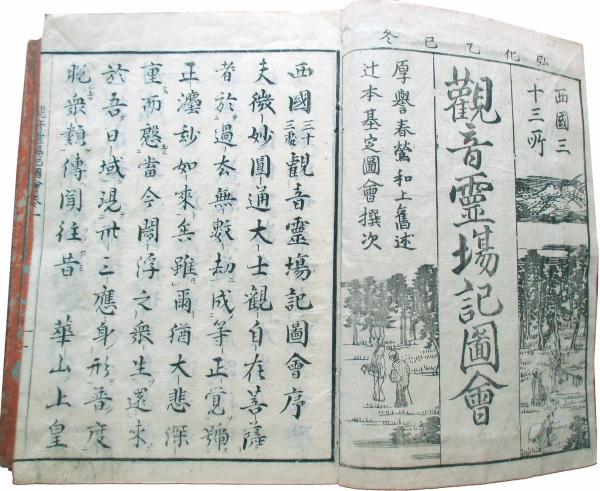 弘化乙巳冬
西國三
十三所
觀音靈塲記圖會
厚譽春鶯和上舊述
辻本基定圖會撰次
西國三十三處觀音靈塲記圖會序
夫微妙圓通大士觀自在菩薩
者於過去無數劫成等正覺號
正灋玅如來矣雖爾猶大悲深
重而愍當今閻浮之衆生還來
於吾日域現卅三應身形普度
脱衆類傳聞往昔 華山上皇